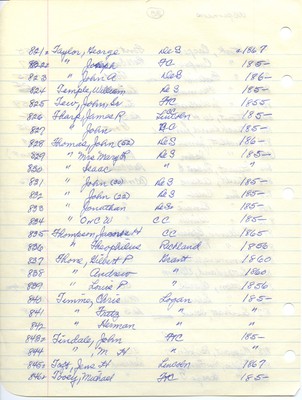 821 Taylor, George De S 1867
822 " Joseph FC 185-
823 " John A De S 186-
824 Temple, William De S 185-
825 Tew, John Sr FC 1855
826 Tharp, James R Lincoln 185-
827 " John FC 185-
828 Thomas, John (22) De S 186-
829 " Mrs Mary L De S 185-
830 " Isaac " "
831 " John (20) De S 185-
832 " John (22) De S 185-
833 " Jonathan De S 185-
834 " O n C W C C 185-
835 Thompson, H CC 1865
836 " Theophilus Richland 1856
837 Thorn, Gilbert P Grant 1860
838 " Andrew " 1860
839 " Lewis P " 1856
840 Timme, Chris Logan 185-
841 " Fritz " "
842 " Herman " "
843 Tindale, John FC 185-
844 " , M H " "
845 Toff, Jane H Lincoln 1867
846 Tooey, Michael FC 185-